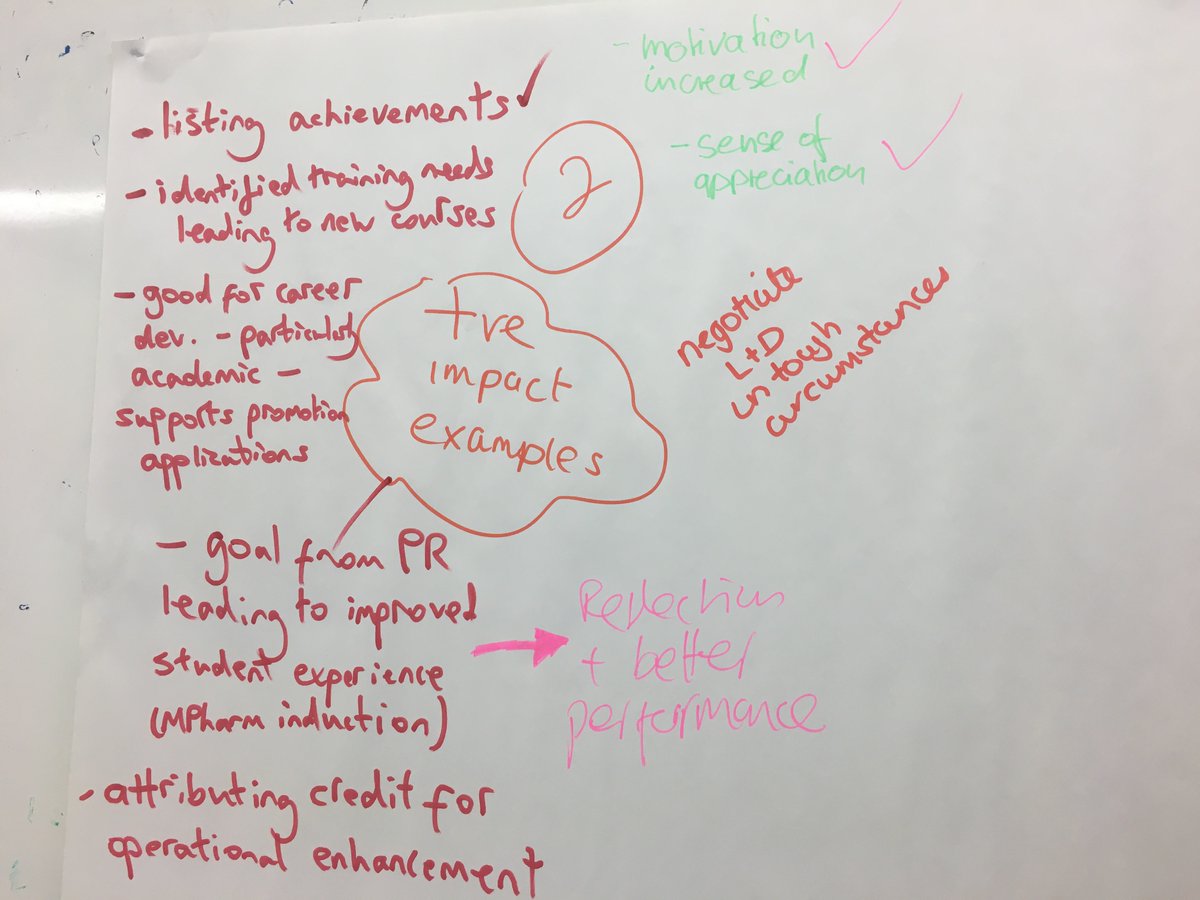 - listing achievements ✓
- identified training needs
leading to new courses
- good for career
dev. - particularly
academic -
supports promotion
applications
- goal from PR
leading to improved
student experience
(MPharm induction)
- attributing credit for
operational enhancement
2
+ve
impact
examples
- motivation
increased ✓
- sense of
appreciation ✓
negotiate
L+D
in tough
circumstances
Reflection
+ better
performance